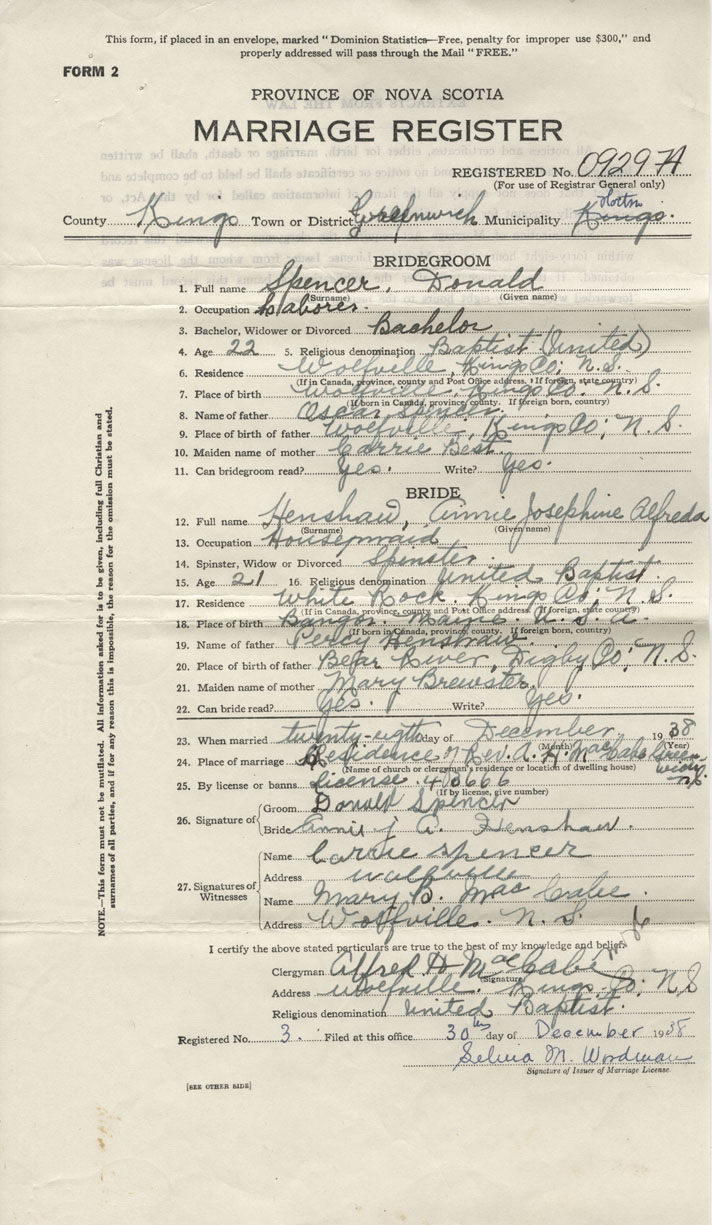 This form, if placed in an envelope, marked "Dominion Statistics—Free, penalty for improper use $300," and
properly addressed will pass through the Mail "FREE."
FORM 2
PROVINCE OF NOVA SCOTIA
MARRIAGE REGISTER
REGISTERED No. 09297A
(For use of Registrar General only)
Horton
County Kings Town or District Greenwich Municipality Kings.
BRIDEGROOM
1. Full name Spencer, Donald
(Surname) (Given name)
2. Occupation Laborer.
3. Bachelor, Widower or Divorced Bachelor
4. Age 22 5. Religious denomination Baptist (United)
6. Residence Wolfville, Kings Co; N. S.
(If in Canada, province, county and Post Office address. If foreign, state country)
7. Place of birth Wolfville, Kings Co. N. S.
(If born in Canada, province, county. If foreign born, country)
8. Name of father Oscar Spencer.
9. Place of birth of father Wolfville, Kings Co; N. S.
10. Maiden name of mother Carrie Best.
11. Can bridegroom read? Yes. Write? Yes.
BRIDE
12. Full name Henshaw, Annie Josephine Alfreda
(Surname) (Given name)
13. Occupation Housemaid
14. Spinster, Widow or Divorced Spinster.
15. Age 21 16. Religious denomination United Baptist
17. Residence White Rock. Kings Co; N. S.
(If in Canada, province, county and Post Office address. If foreign, state country)
18. Place of birth Bangor. Maine. U. S. A.
(If born in Canada, province, county. If foreign born, country)
19. Name of father Percy Henshaw.
20. Place of birth of father Bear River, Digby Co; N. S.
21. Maiden name of mother Mary Brewster.
22. Can bride read? Yes. Write? Yes.
23. When married twenty-eigth day of December, 1938
(Month) (Year)
24. Place of marriage Residence of Rev. A. H. MacCabe Greenwich, N.S.
(Name of church or clergyman's residence or location of dwelling house)
25. By license or banns License. 403666
(If by license, give number)
26. Signature of Groom Donald Spencer
Bride Annie J A. Henshaw.
27. Signatures of Witnesses
Name Carrie Spencer
Address Wolfville
Name Mary B. MacCabe.
Address Wolfville. N. S.
I certify the above stated particulars are true to the best of my knowledge and belief.
Clergyman Alfred H. MacCabe
(Signature)
Address Wolfville. Kings. Co; N. S
Religious denomination United Baptist.
Registered No. 3. Filed at this office 30th day of December 1938
Selma M. Wordman
Signature of Issuer of Marriage License.
[SEE OTHER SIDE]
NOTE.—This form must not be mutilated. All information asked for is to be given, including full Christian and
surnames of all parties, and if for any reason this is impossible, the reason for the omission must be stated.